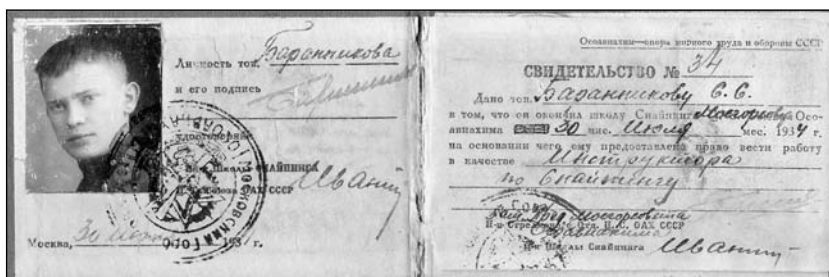 Личность тов. Баранникова
и его подпись
удостоверяет
Нач. Школы СНАЙПИНГА
ОАХ СССР Иванин
Москва, 30 193 г.
Осоавиахим—опора мирного труда и обороны СССР
СВИДЕТЕЛЬСТВО № 34
Дано тов. Баранникову С. С.
в том, что он окончил школу Снайпинга Осо-
авиахима 30 чис. Июля мес. 1934 г.
на основании чего ему предоставлено право вести работу
в качестве Инструктора
по Снайпингу
Зам. Пред. Мосгорсовета
Осоавиахима
Н-к Стрелкового Отд. Ц.С. ОАХ СССР
Н-к Школы Снайпинга Иванин